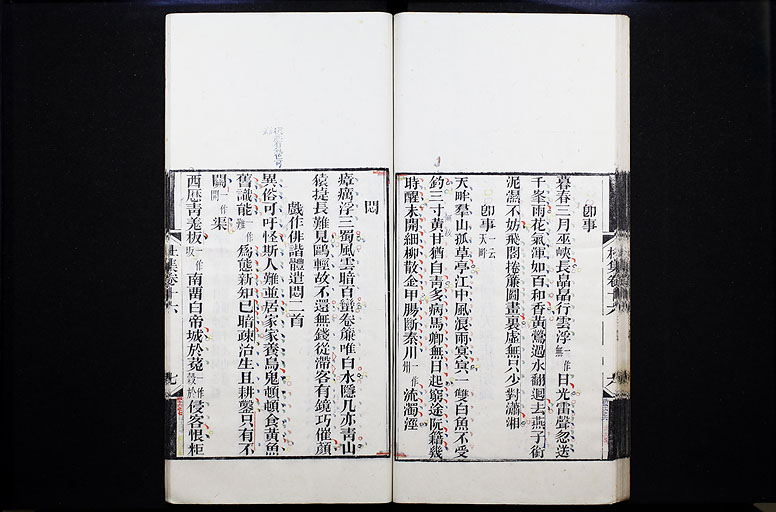 即事
暮春三月巫峽長皛皛行雲浮一作無日光雷聲忽送
千峯雨花氣渾如百和香黃鶯過水翻迴去燕子銜
泥濕不妨飛閣捲簾圖畫裏虛無只少對瀟湘
即事一云天畔
天畔羣山孤草亭江中風浪雨冥冥一雙白魚不受
釣三寸黃甘猶自青多病馬卿無日起窮途阮籍幾
時醒未聞細柳散金甲腸斷秦川一作州流濁涇
杜集卷十六
悶
瘴癘浮三蜀風雲暗百蠻卷簾唯白水隱几亦青山
猿捷長難見鷗輕故不還無錢從滯客有鏡巧催顏
戲作俳諧體遣悶二首
異俗可吁怪斯人難並居家家養烏鬼頓頓食黃魚
舊識能一作難爲態新知已暗疎治生且耕鑿只有不
關一作開渠
西歷青羌板一作坂南留白帝城於菟一作㝅於侵客恨粔
杜集卷十六
九